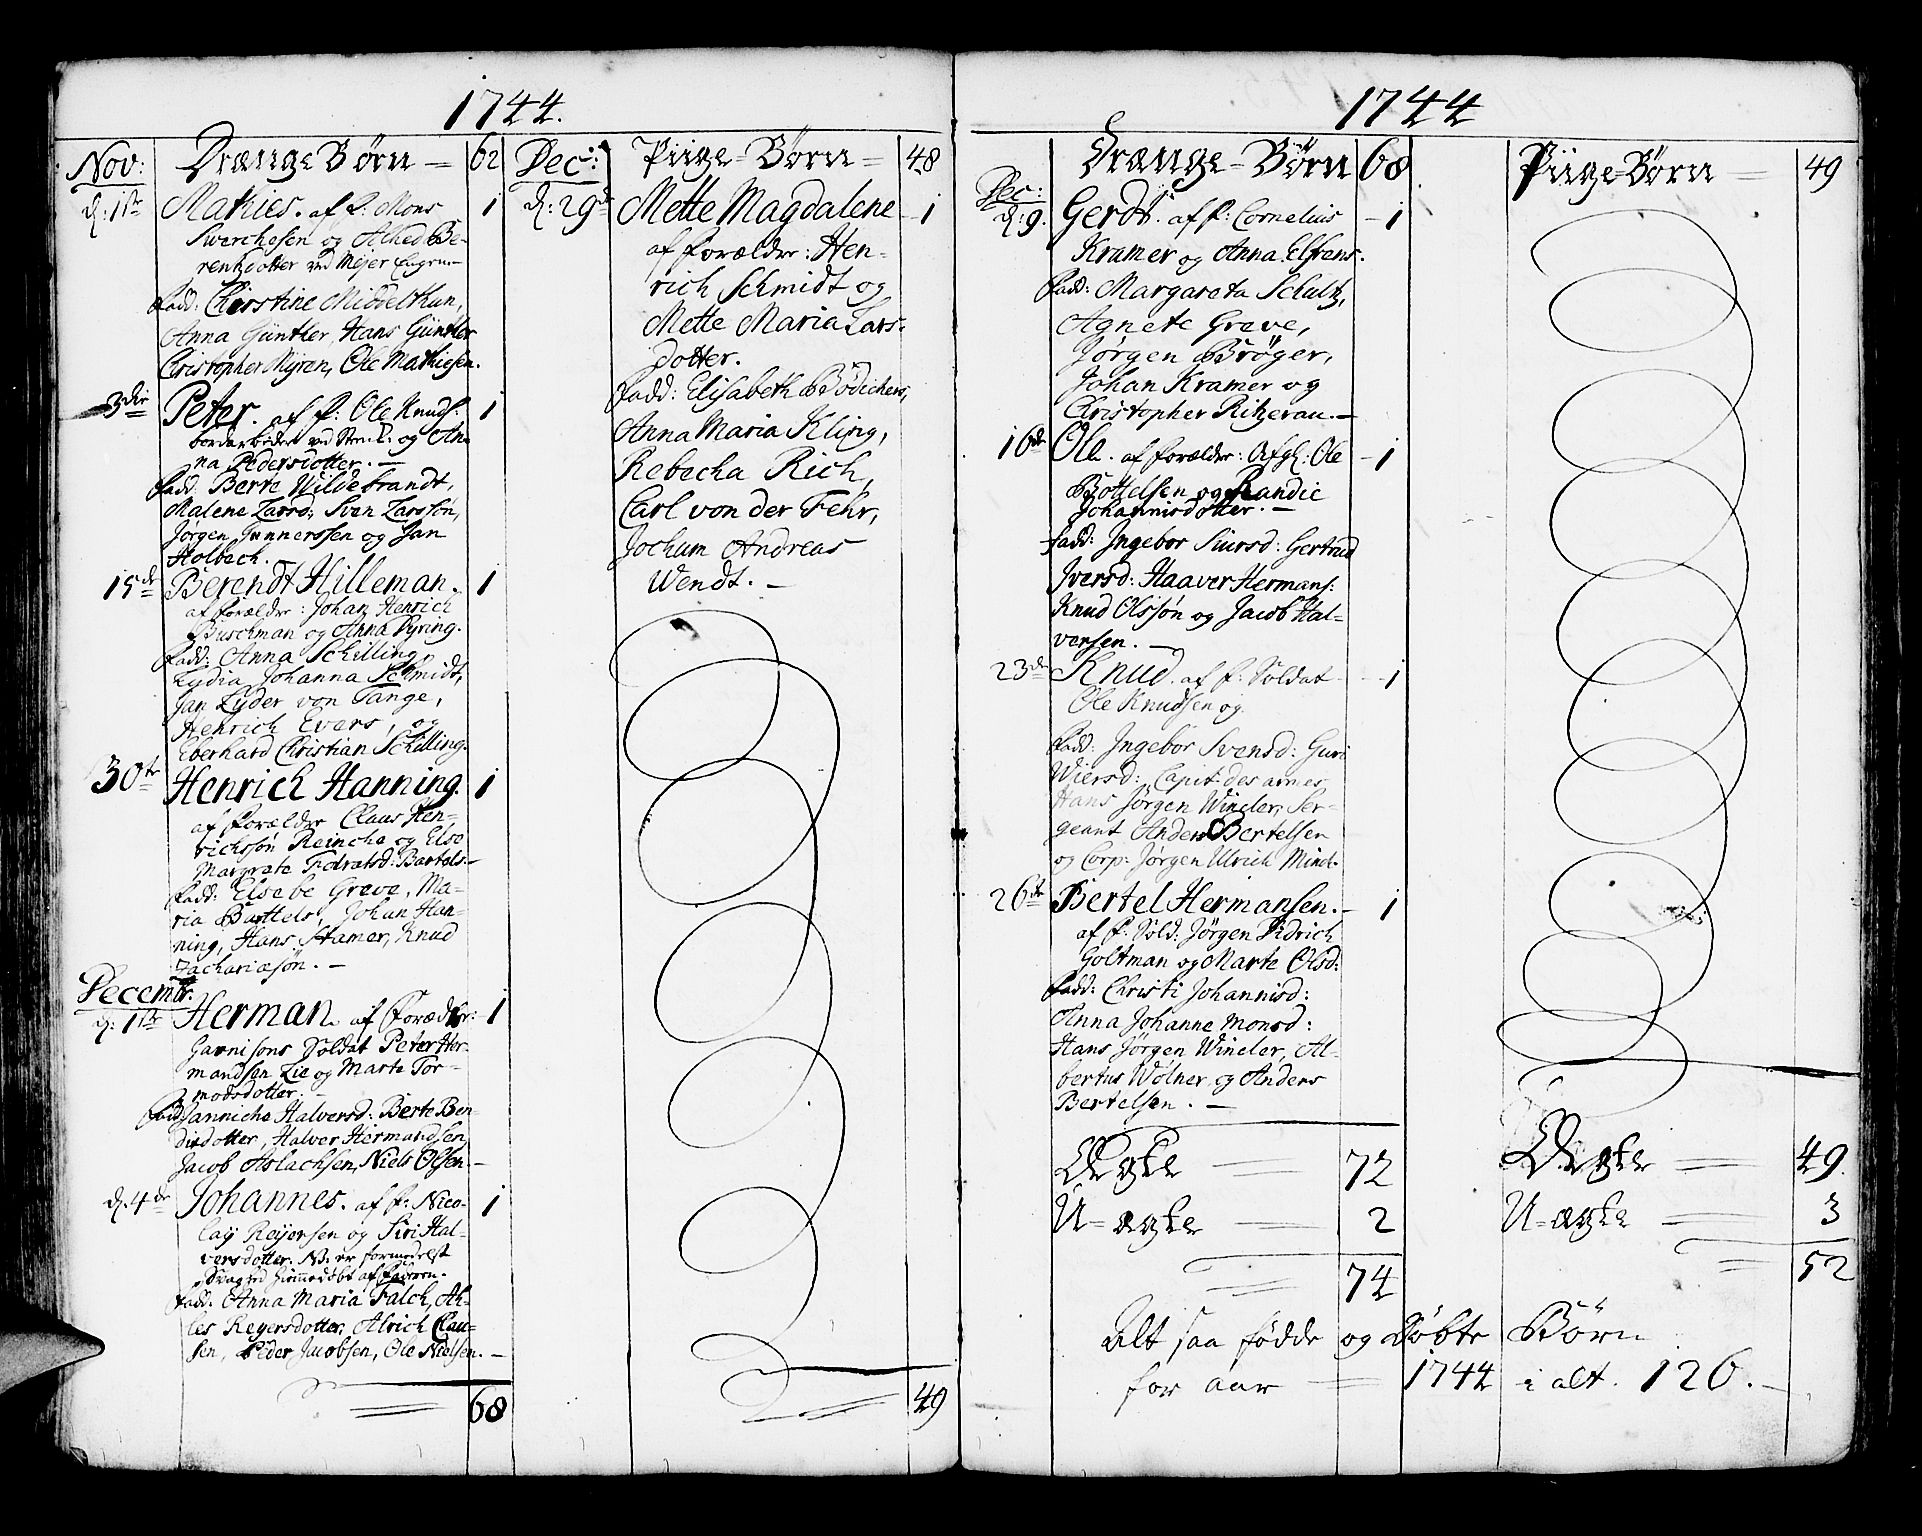 1744.
Nov: Drænge Børn = 62
d: 1ste Mathies. af f: Mons 1
Swerchesen og Alhed Be-
rentzdotter ved Mejer Engen
fadd: Christine Middelthun,
Anna Günther, Hans Günther
Christopher Myren, Ole Mathiesen.
3die Peter. af f: Ole Knuds: 1
bordarbeider ved og An-
na Pedersdotter. —
fadd: Berte Wildebrandt,
Malene Larsd: Sven Larssøn,
Jørgen Gunnerssen og Jan
Holbech.
15de Berendt Hilleman. 1
af forældre: Johan Henrich
Buschman og Anna Pyring.
fadd: Anna Schilling,
Lydia Johanna Schmidt,
Jan Lyder von Tange,
Henrich Evers, og
Eberhard Christian Schilling.
30te Henrich Hanning. 1
af forældre Claus Hen-
richsøn Reincke og Else
Margrete Bartels. —
fadd: Elsebe Greve, Ma-
ria Bartels, Johan Han-
ning, Hans Stamer, Knud
Zachariæsøn. —
Decembr.
d: 1ste Herman. af Forældre: 1
Garnisons Soldat Peter Her-
mandsen Lie og Marte Tor-
modsdotter. —
fadd: Janniche Halversd: Berte Ben-
disdotter, Halver Hermandsen,
Jacob Aslachsen, Niels Olsen. —
d. 4de Johannes. af f: Nico- 1
lay Reyersen og Siri Hal-
versdotter. NB. er formedelst
Svaghed hiemmedøbt af
fadd: Anna Maria Falch, Ah-
les Reyersdotter, Alrich Clau-
sen, Peder Jacobsen, Ole Nielsen. —
68
Dec: Piige-Børn = 48
d: 29de Mette Magdalene 1
af forældre: Hen-
rich Schmidt og
Mette Maria Lars-
dotter.
fadd: Elisabeth Bødichers,
Anna Maria Kling,
Rebecha Rich,
Carl von der Fehr,
Jochum Andreas
Wendt. —
49
1744
Drænge-Børn 68
Dec:
d: 9. Gerdt. af f: Cornelius 1
Kramer og Anna Elfrens.
fadd: Margareta Schultz,
Agnete Greve,
Jørgen Brøger,
Johan Kramer og
Christopher Ritzerau. —
16de Ole. af forældre: Afgl: Ole 1
Bottelsen og Randie
Johannisdotter. —
fadd: Ingebor Siursd: Gertrud
Iversd: Haaver Hermans:
Knud Olssøn og Jacob Hal-
versen. —
23de Knud. af f: Soldat 1
Ole Knudsen og
fadd: Ingebor Svensd: Guri
Wiersd: Capit: des armes
Hans Jørgen Wincler, Ser-
geant Anders Bertelsen
og Corp: Jørgen Ulrich Minch.
26de Bertel Hermansen. — 1
af f: Sold: Jørgen Didrich
Goltman og Marte Olsd:
fadd: Christi Johannisd:
Anna Johanne Monsd:
Hans Jørgen Wincler, Al-
bertus Wølner og Anders
Bertelsen. —
Ægte 72
U-ægte 2
74
Piige-Børn 49
Ægte 49.
U-ægte 3
52
Alt saa fødde og Døbte Børn
for aar 1744 i alt. 126. —